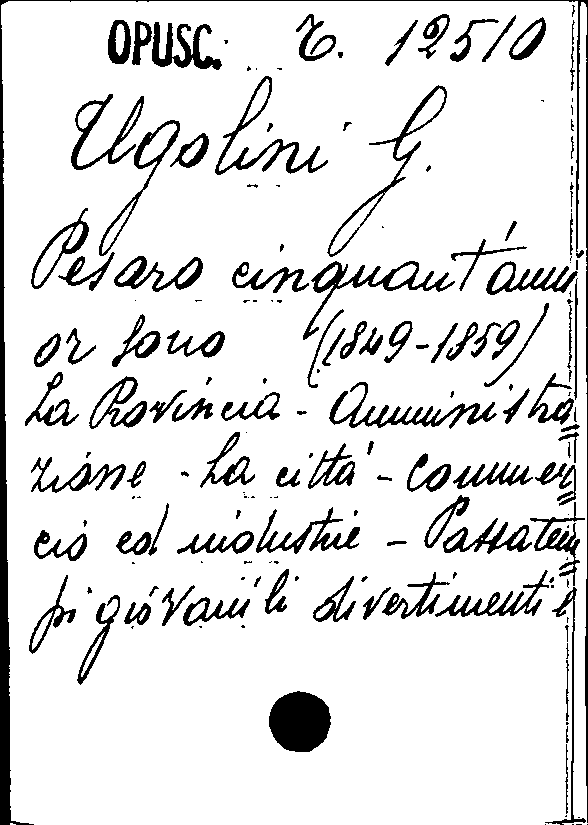 OPUSC. T. 12510
Ugolini G.
Pesaro cinquant'anni
or sono (1849-1859)
La Provincia - Amministra
zione - La città - Commer
cio ed industrie - Passatem
pi giovanili divertimenti e